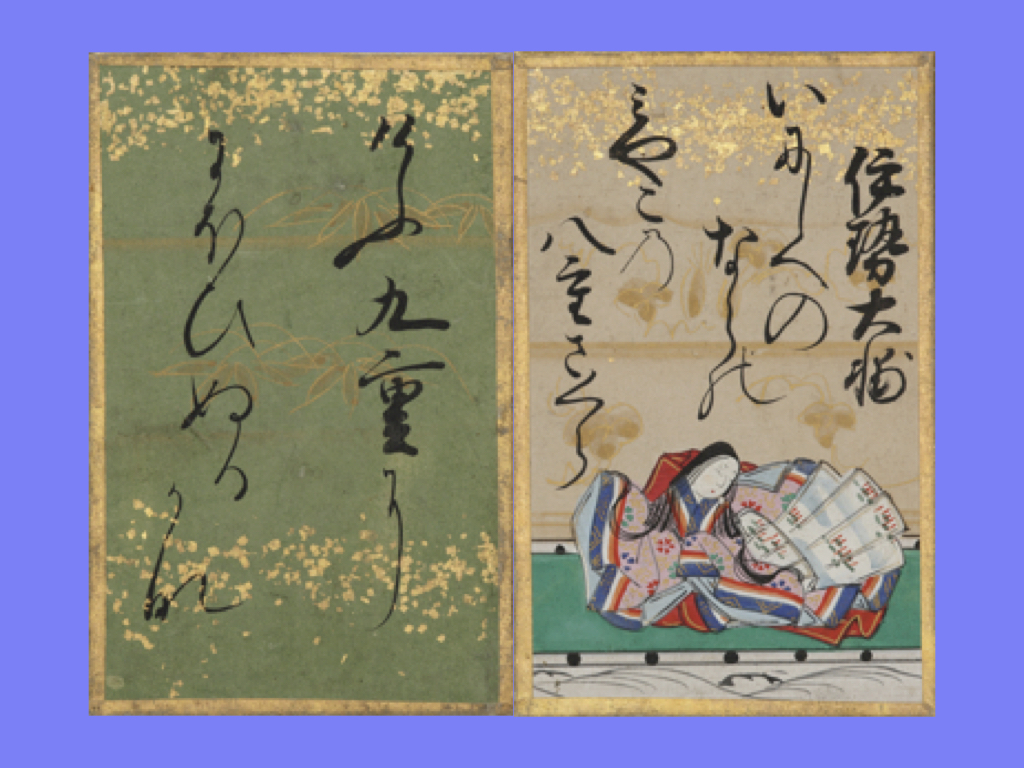 伊勢大輔
いにしへの
ならの
みやこの
八重さくら
けふ九重に
にほひぬる
かな